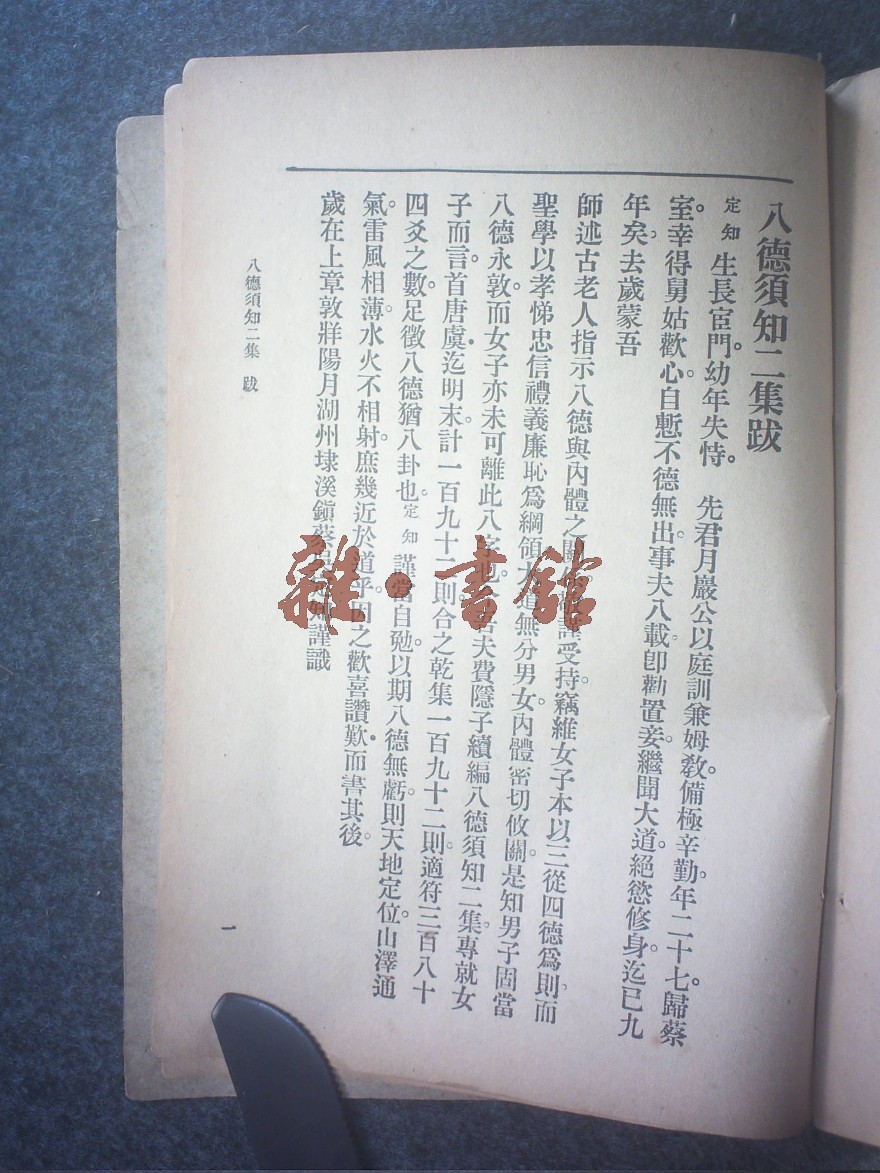 八德須知二集跋
定知生長宦門。幼年失恃。　先君月嚴公以庭訓兼姆敎。備極辛勤。年二十七。歸蔡
室。幸得舅姑歡心。自慙不德無出。事夫八載。卽勸置妾。繼聞大道。絕慾修身。迄已九
年矣。去歲蒙吾
師述古老人指示八德與內體之關謹受持。竊維女子本以三從四德爲則。而
聖學以孝悌忠信禮義廉恥爲綱領。大道無分男女。內體密切攸關。是知男子固當
八德永敦。而女子亦未可離此八字也。夫費隱子續編八德須知二集。專就女
子而言。首唐虞。迄明末。計一百九十二則。合之乾集一百九十二則。適符三百八十
四爻之數。足徵八德猶八卦也。定知謹當自勉。以期八德無虧。則天地定位。山澤通
氣。雷風相薄。水火不相射。庶幾近於道乎。因之歡喜讚歎。而書其後。
歲在上章敦牂陽月湖州埭溪鎭蔡知謹識
八德須知二集　跋
一
雜·書館